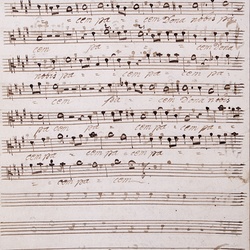 cem pa = cem Dona nobis pa
cem pa = cem Dona
nobis pa = cem pa = cem pa
cem pa = cem Dona nobis
pa cem pa = cem pa
cem pa = cem pa
= cem pa = cem